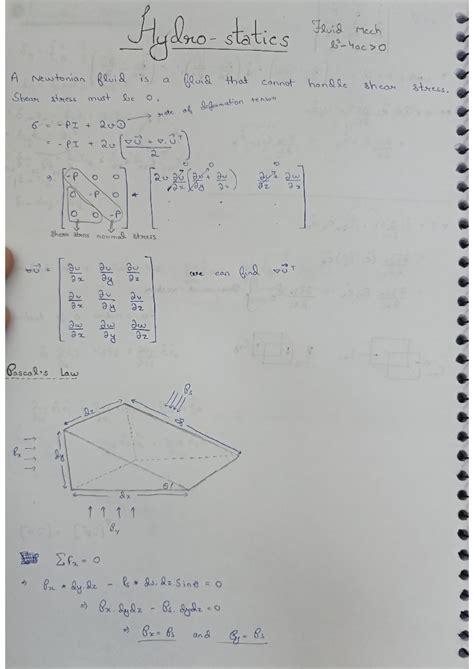 Hydro-statics
Fluid Mech
b²-4ac>0
A Newtonian fluid is a fluid that cannot handle shear stress.
Shear stress must be 0.
rate of deformation tensor
σ = -PI + 2υD
= -PI + 2υ (∇U + ∇U^T / 2)
⇒ [-P 0 0; 0 -P 0; 0 0 -P] +
shear stress normal stress
∇U = [∂u/∂x ∂u/∂y ∂u/∂z; ∂v/∂x ∂v/∂y ∂v/∂z; ∂w/∂x ∂w/∂y ∂w/∂z] we can find ∇U^T
Pascal's Law
Ps
dz
ds
Px
dy
θ
dx
Py
ΣFx = 0
⇒ Px * dy.dz - Ps * ds.dz Sinθ = 0
⇒ Px.dydz - Ps.dydz = 0
⇒ Px = Ps and Py = Ps